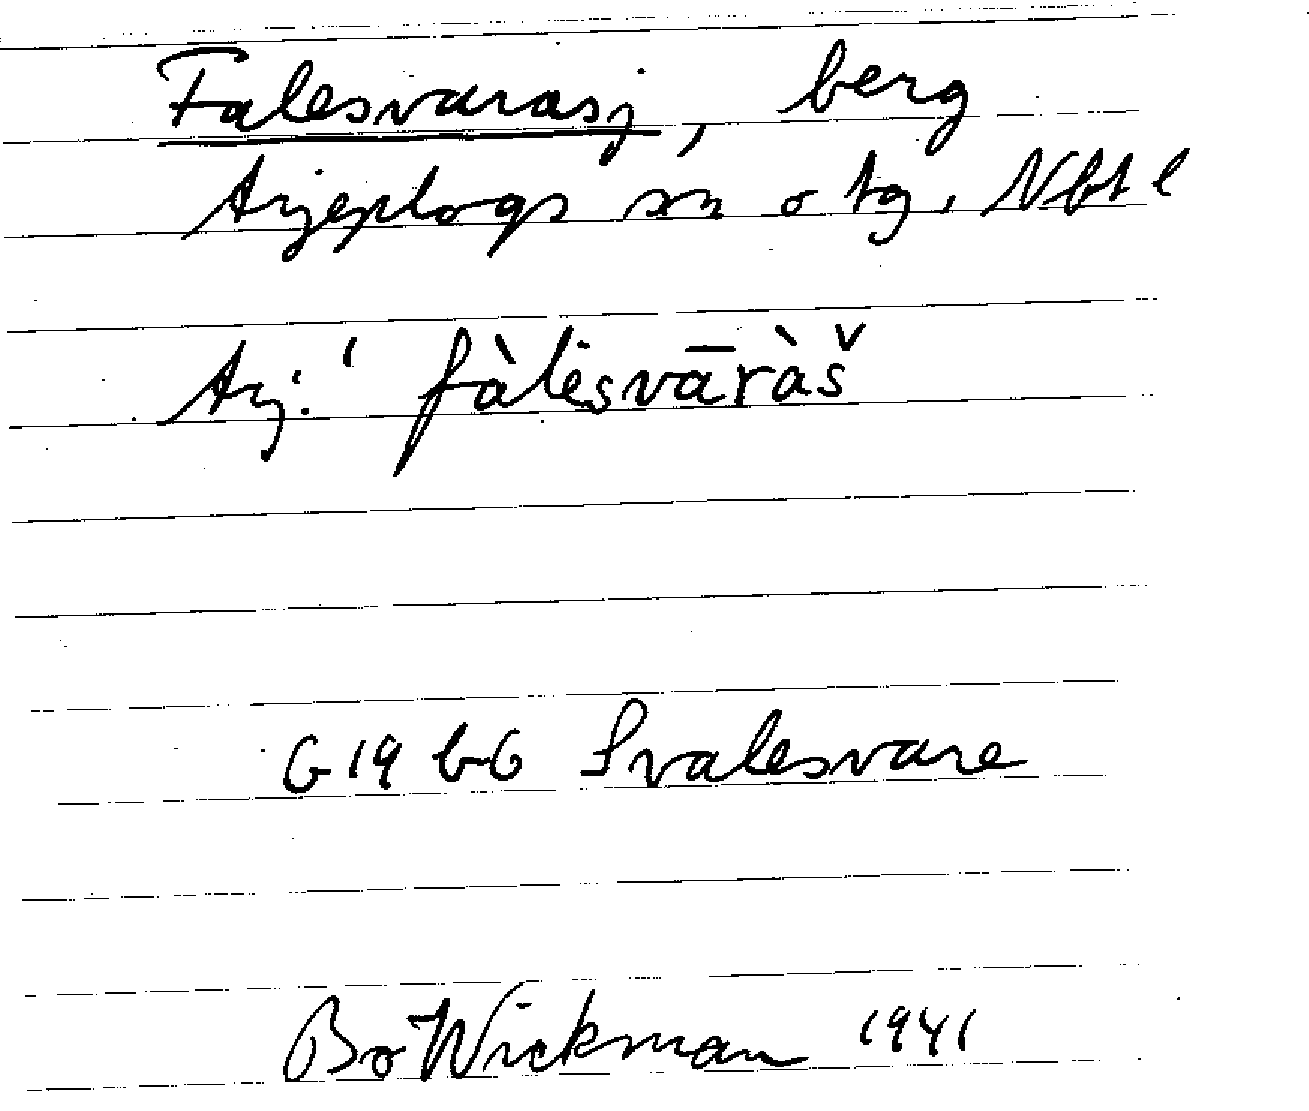 Falesvarasj, berg
Arjeplogs sn o tg, Nbt l
Arj: ˈfàlėsvāràš
G 19 b6 Svalesvare
Bo Wickman 1941